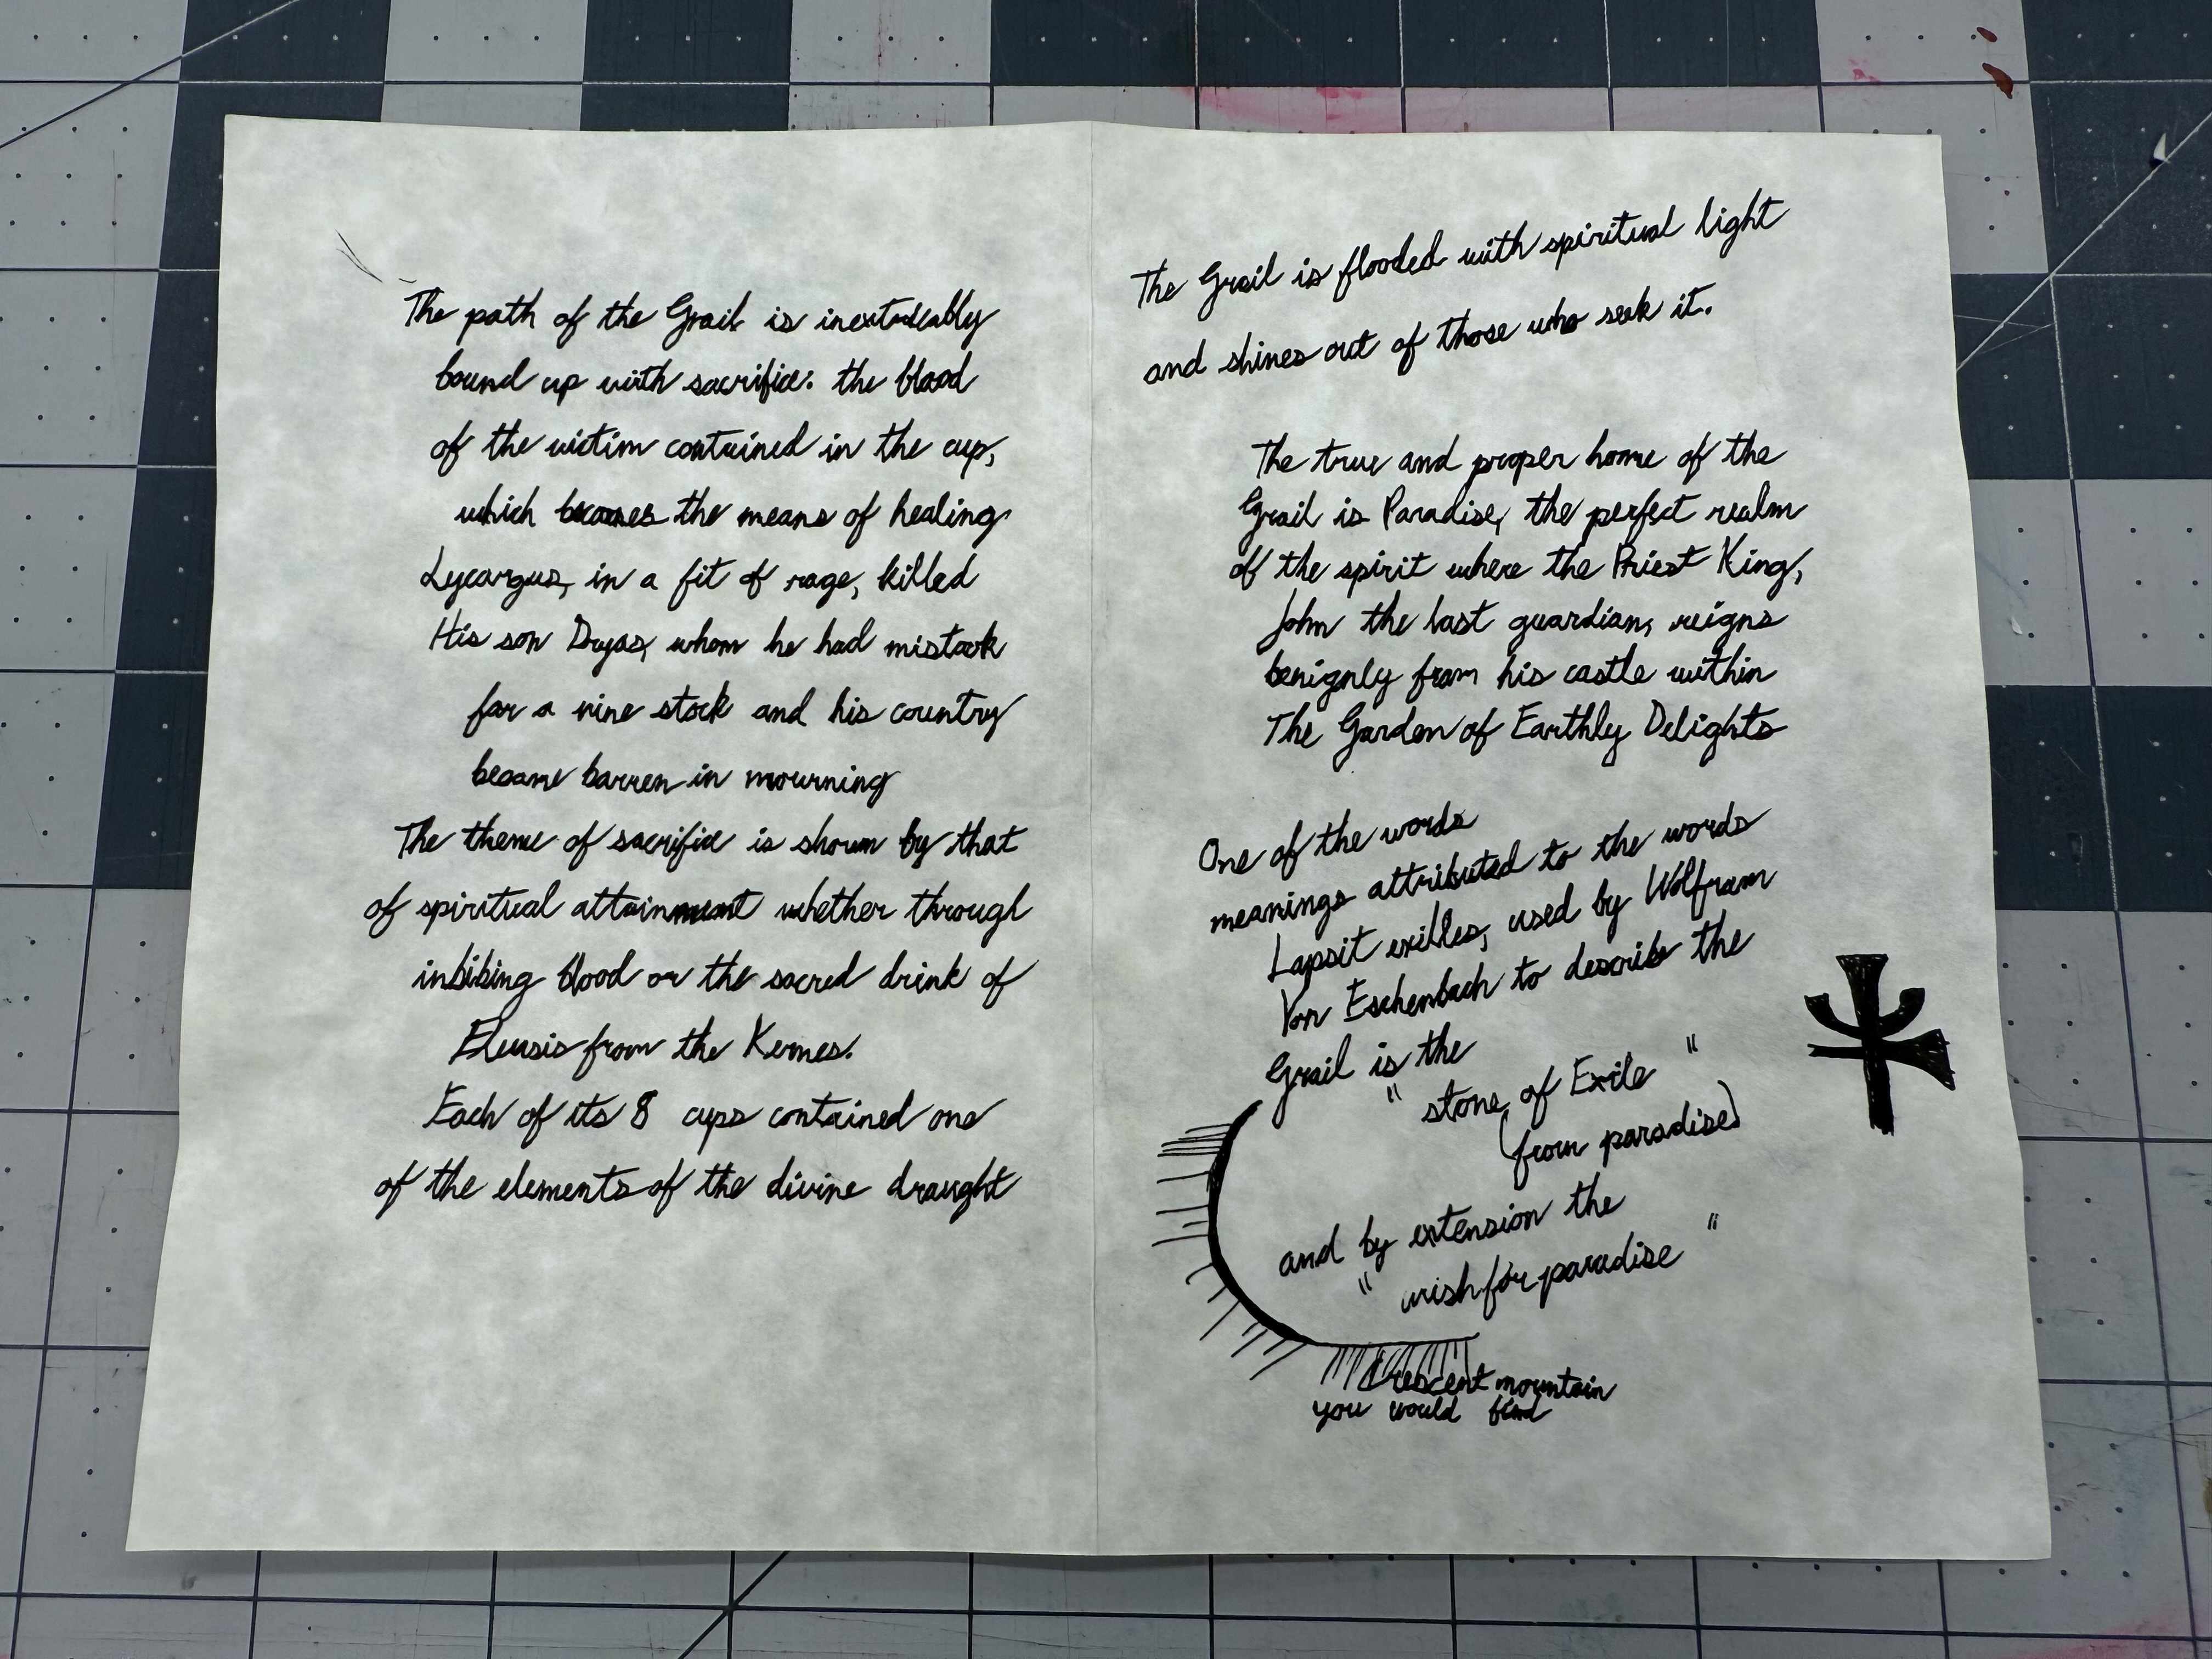 The path of the Grail is inextricably
bound up with sacrifice: the blood
of the victim contained in the cup,
which becomes the means of healing
Lycurgus, in a fit of rage, killed
His son Dryas, whom he had mistook
for a vine stock and his country
became barren in mourning
The theme of sacrifice is shown by that
of spiritual attainment whether through
inbibing blood or the sacred drink of
Eleusis from the Kernes.
Each of its 8 cups contained one
of the elements of the divine draught
The Grail is flooded with spiritual light
and shines out of those who seek it.
The true and proper home of the
Grail is Paradise, the perfect realm
of the spirit where the Priest King,
John the last guardian, reigns
benignly from his castle within
The Garden of Earthly Delights
One of the words
meanings attributed to the words
Lapsit exilles, used by Wolfram
Von Eschenbach to describe the
Grail is the
" stone of Exile "
(from paradise)
and by extension the
" wish for paradise "
Crescent mountain
you would find